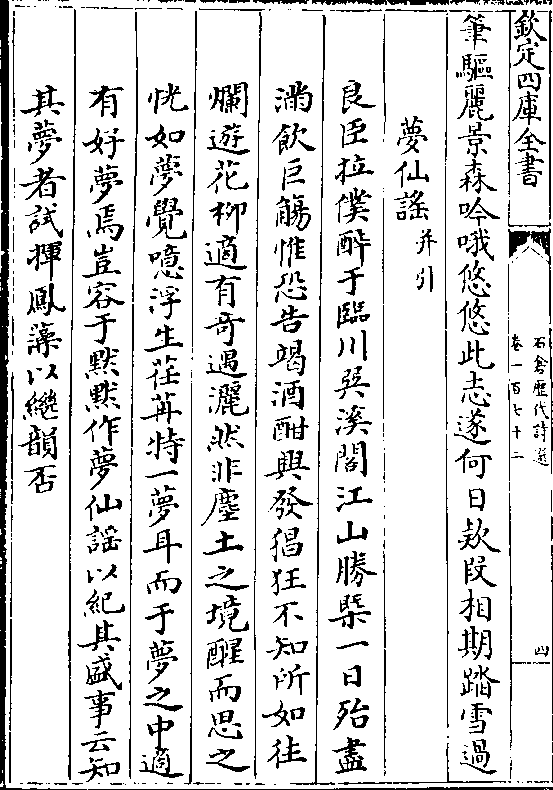 欽定四庫全書
石倉歷代詩選
卷一百七十二
四
筆驅麗景森吟哦悠悠此志遂何日欵段相期踏雪過
夢仙謡并引
良臣拉僕醉于臨川吳溪閣江山勝槩一日殆盡
滿飲巨觴惟恐告竭酒酣興發猖狂不知所如往
爛遊花柳適有奇遇灑然非塵土之境醒而思之
恍如夢覺噫浮生荏苒特一夢耳而于夢之中適
有好夢焉豈容于黙黙作夢仙謡以紀其盛事云知
其夢者試揮鳳藻以繼韻否